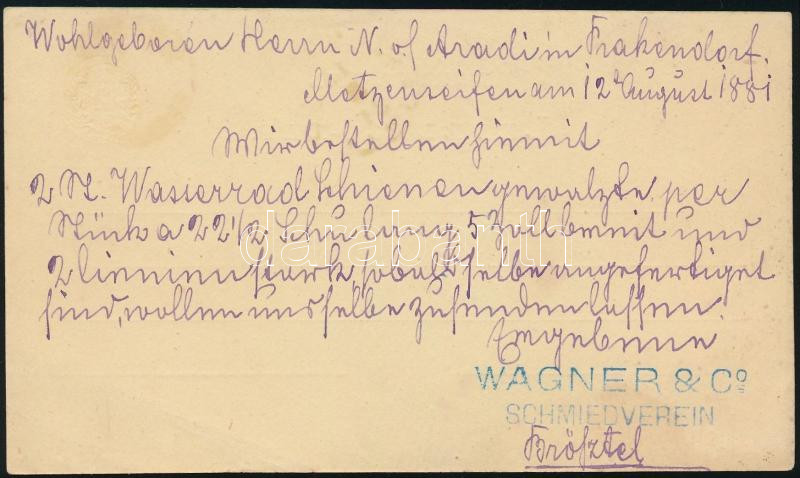 Wohlgeboren Herrn N. of Aradi in Prakendorf.
Metzenseifen am 12t August 1881
Wir bestellen hiemit
2 St. Wasserrad Schienen gewalzte per
Stück a 22 1/2 Schuh lang 5 Zoll breit und
2 linien stark sobald selbe angefertiget
sind, wollen uns selbe zusenden lassen.
Ergebene
WAGNER & Co
SCHMIEDVEREIN
darabanth